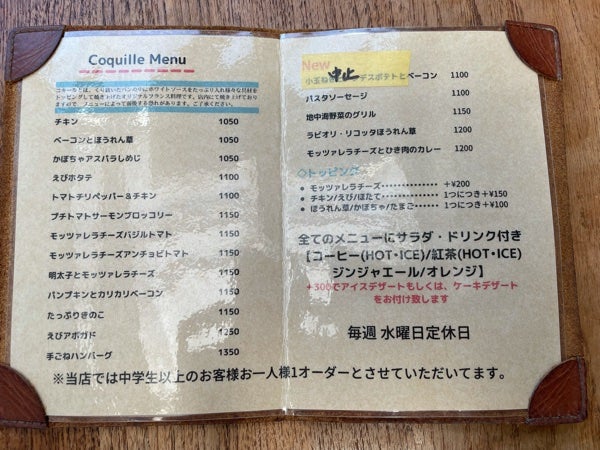 Coquille Menu
コキールとは、くり抜いたパンの中にホワイトソースをたっぷり入れ様々な具材を
トッピングして焼き上げたオリジナルフランス料理です。店内にて焼き上げており
ますので、メニューによって前後する恐れがあります。ご了承ください。
チキン 1050
ベーコンとほうれん草 1050
かぼちゃアスパラしめじ 1050
えびホタテ 1100
トマトチリペッパー＆チキン 1100
プチトマトサーモンブロッコリー 1150
モッツァレラチーズバジルトマト 1150
モッツァレラチーズアンチョビトマト 1150
明太子とモッツァレラチーズ 1150
パンプキンとカリカリベーコン 1150
たっぷりきのこ 1150
えびアボガド 1250
手ごねハンバーグ 1350
New
中止
小玉ね デスポテトとベーコン 1100
パスタソーセージ 1100
地中海野菜のグリル 1150
ラビオリ・リコッタほうれん草 1200
モッツァレラチーズとひき肉のカレー 1200
◇トッピング
• モッツァレラチーズ・・・・・・・・・・・・・・ ＋¥200
• チキン/えび/ほたて・・・・・・・・・・・1つにつき＋¥150
• ほうれん草/かぼちゃ/たまご・・・・・・1つにつき＋¥100
全てのメニューにサラダ・ドリンク付き
【コーヒー(HOT・ICE)/紅茶(HOT・ICE)
ジンジャエール/オレンジ】
＋300でアイスデザートもしくは、ケーキデザート
をお付け致します
毎週 水曜日定休日
※当店では中学生以上のお客様お一人様1オーダーとさせていただいてます。